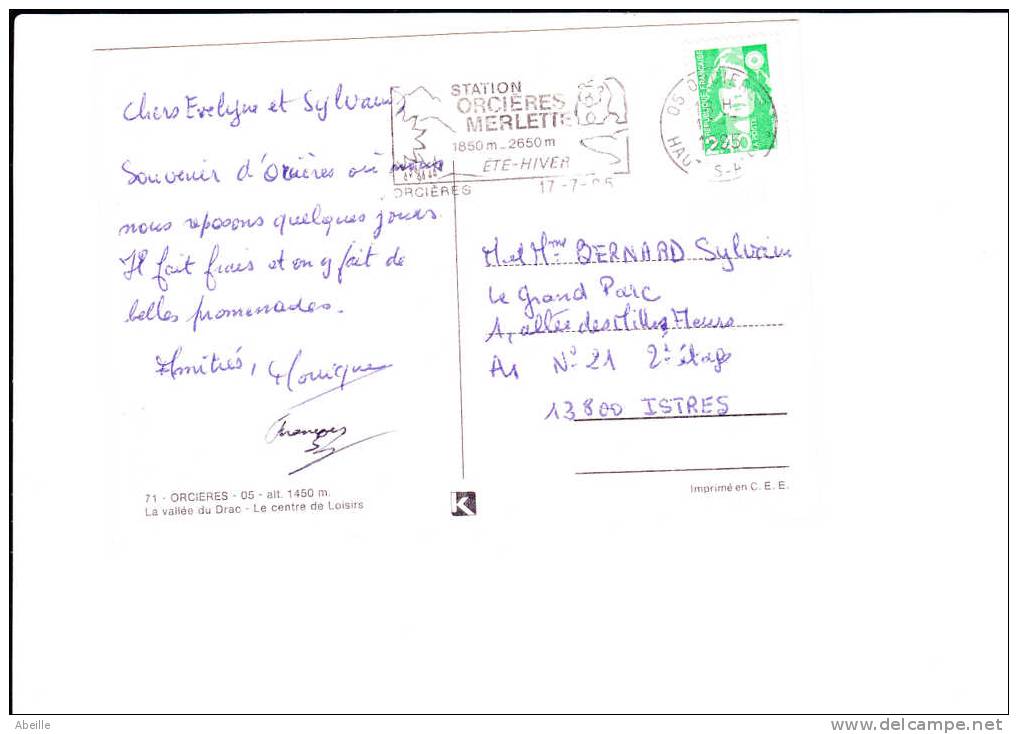 Chers Evelyne et Sylvain,
Souvenir d'Orcières où nous
nous reposons quelques jours.
Il fait frais et on y fait de
belles promenades.
Amitiés, Monique
François
71 - ORCIERES - 05 - alt. 1450 m.
La vallée du Drac - Le centre de Loisirs
STATION
ORCIÈRES
MERLETTE
1850m_2650m
ÉTÉ-HIVER
ORCIÈRES 17-7-95
REPUBLIQUE FRANÇAISE
LA POSTE
M. et Mme BERNARD Sylvain
Le Grand Parc
1, allée des Mille Fleurs
A1 N° 21 2è étage
13800 ISTRES
Imprimé en C. E. E.
K
Abeille
www.delcampe.net